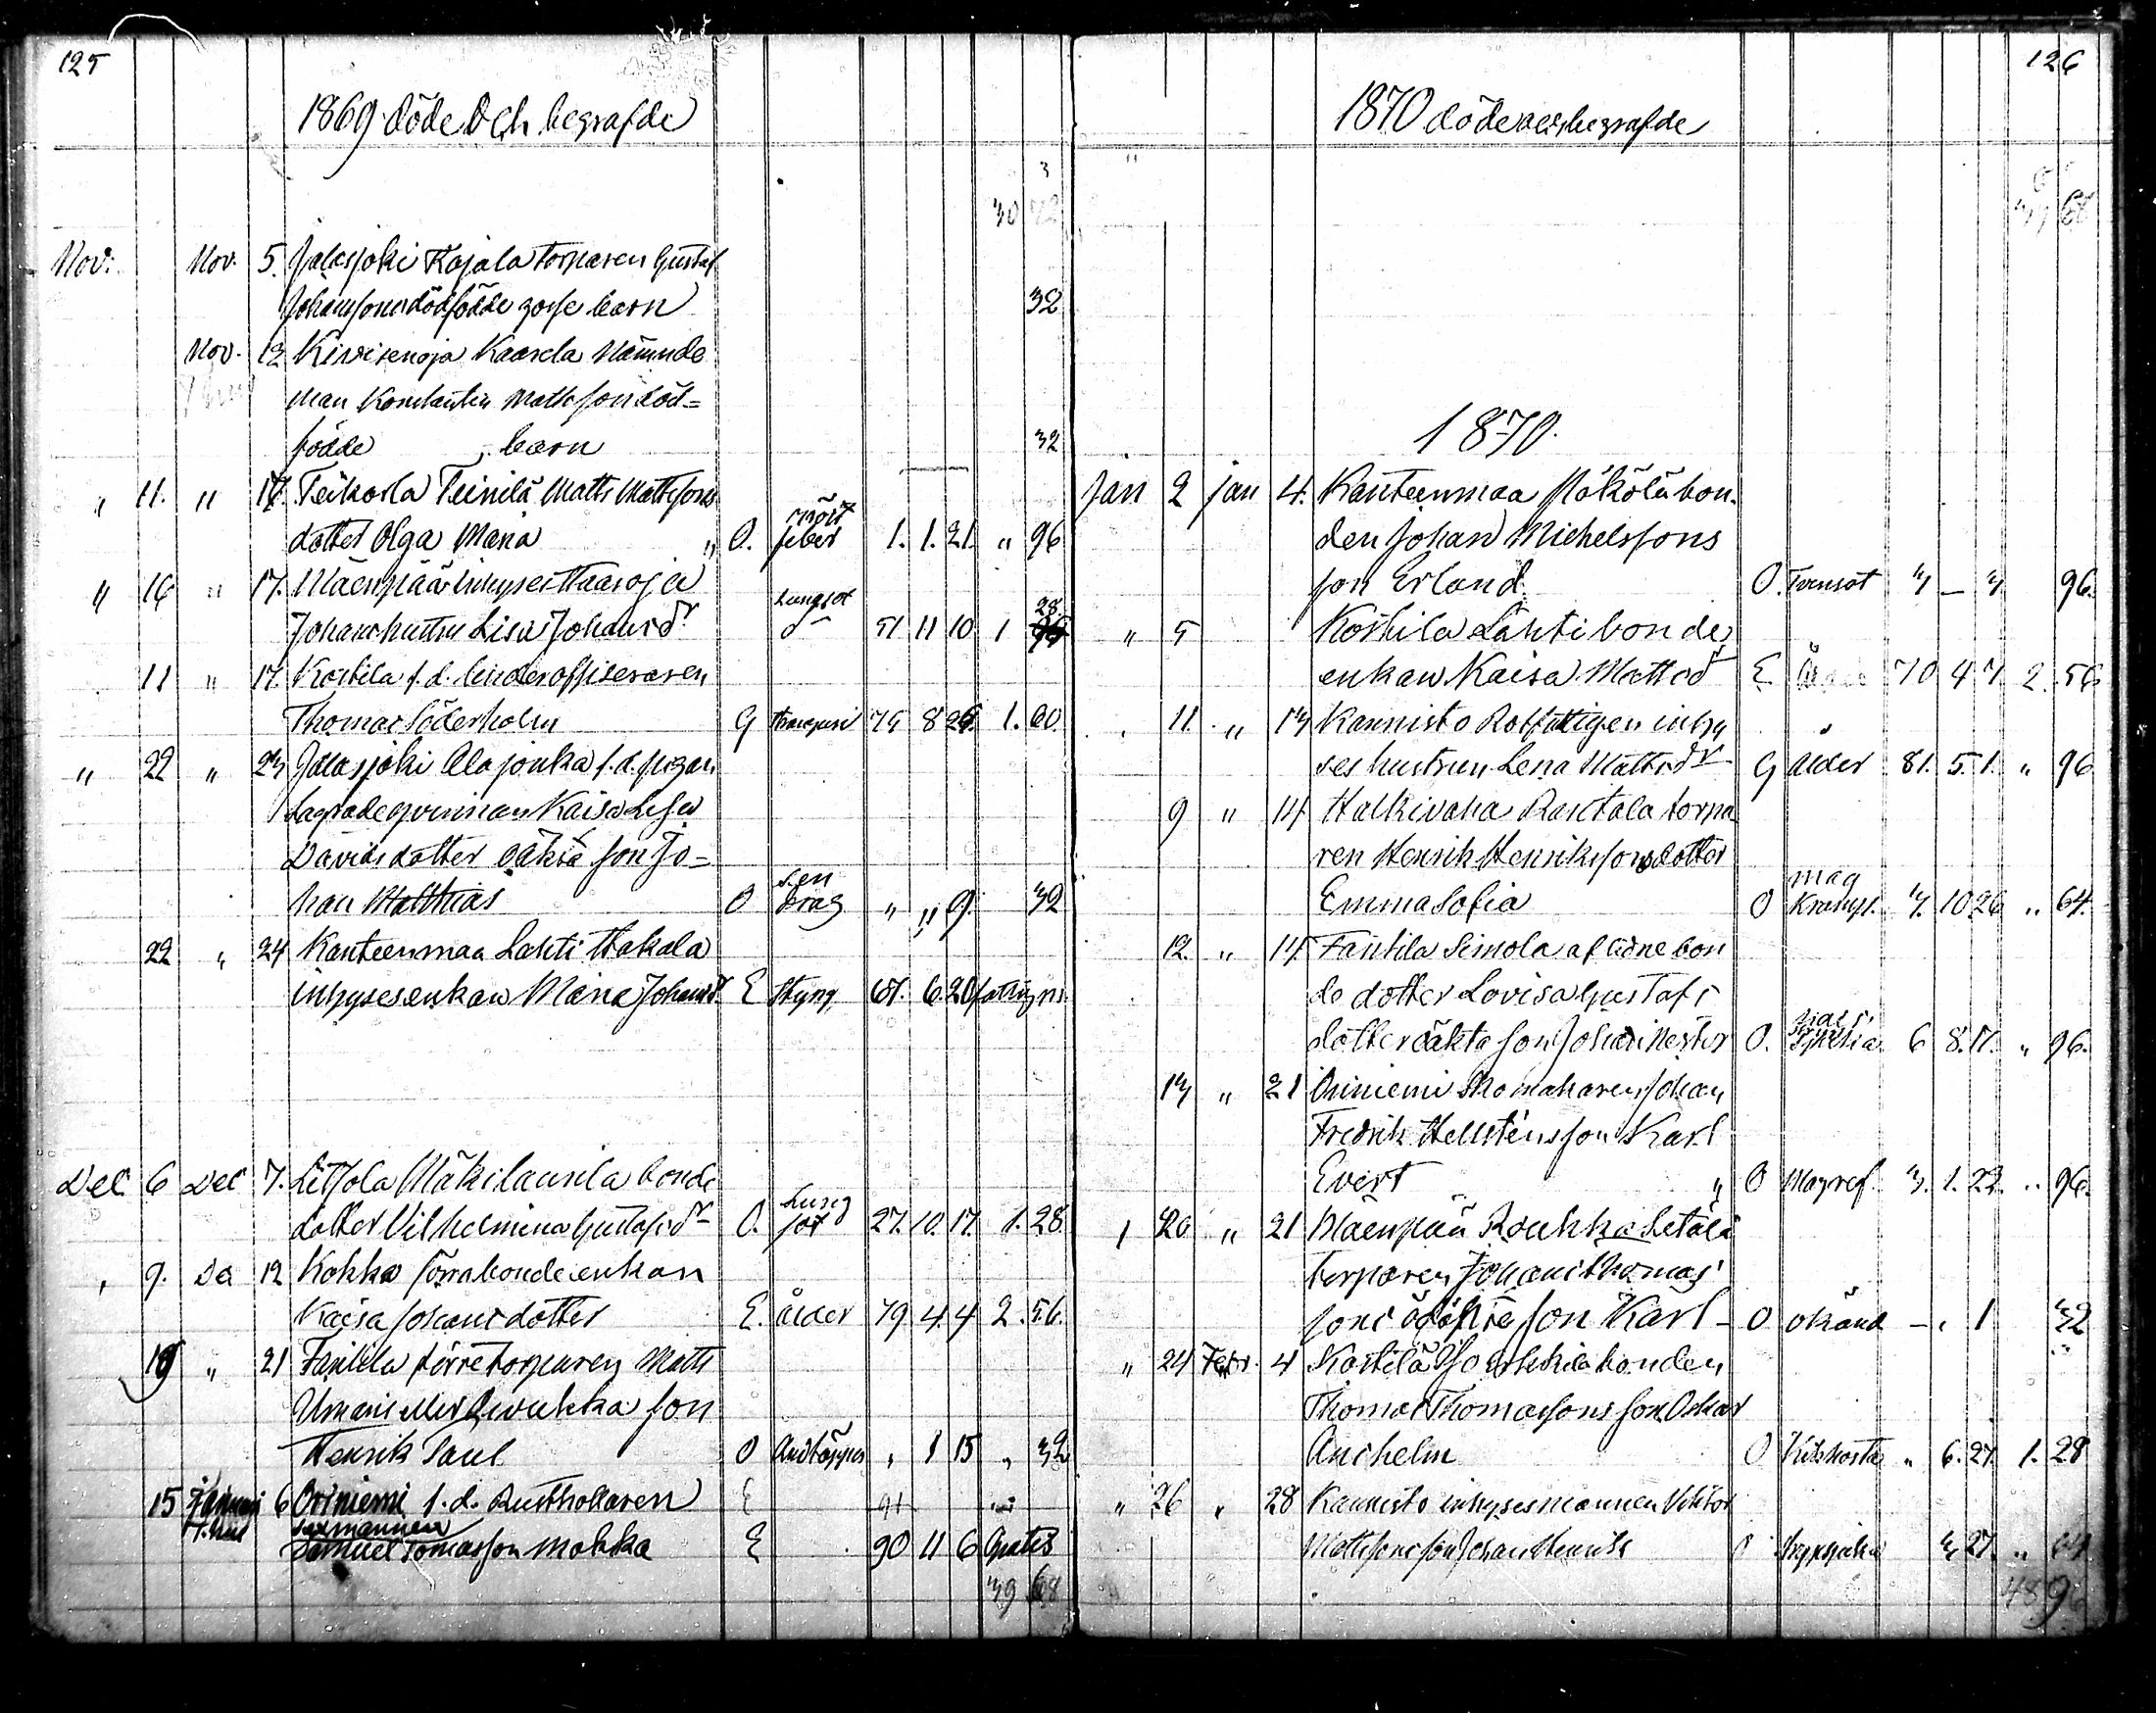 125
1869 döde Och begrafde
3
30 72
Nov: Nov. 5. Jalasjoki Kajala torparen Gustaf
Johanssons dödfödde gosse barn 32
Nov. 12 Kivisenoja Kaarela Nämnde
man Konstantin Mattsson död=
födde barn 32
" 11. " 17. Teikarla Teinilä Matts Mattssons
dotter Olga Maria " O. röt feber 1. 1. 21. " 96
" 16 " 17. Mäenpää inhyses Haaroja
Johans hustru Lisa Johansdr Lungsot 51 11 10 1 28.
11 " 17. Kostila f.d. Underoffiseraren
Thomas Söderholm G 75 8 1. 60.
" 22 " 23 Jalasjoki Alajouka f.d. pigan
Lagrade qvinnan Kaisa Lisa
Davidsdotter oäkta son Jo=
han Matthias O slag " " 9. 32
22 " 24 Kanteenmaa Lahti Hakala
inhysesenkan Maria Johansd. E Styng 67. 6. 20
Dec. 6 Dec 7. Mäkilaurila bonde
dotter Vilhelmina Gustafsdr O. Lung sot 27. 10. 17. 1. 28
" 9. De 12 Kokka Sorra bonde enkan
Kaisa Johansdotter E. ålder 79 4. 4 2. 56.
19 " 21 Fantila torparen Matts
son
Henrik Saul O Andtäppa " 1 15 " 32
15 Januari 6 Oriniemi f.d. Rusthollaren E 91
sexmannen
Samuel Tomasson Mokka E 90 11 6 Gratis
39 68
126
1870 döde och begrafde
"
39 68
1870.
Jan 2 jan 4. Kanteenmaa Pökölä bon-
den Johan Michelssons
son Erland. O. Tvensot 3 – 3. 96.
" 5 Kostila Lahti bonde
enkan Kaisa Mattsdr E 70 4 7. 2. 56
" 11. " 13 Kannisto Rotfattigen inhy
ses hustrun Lena Mattsdr G ålder 81. 5. 1. " 96
9 " 14 Halkivaha Rantala torpa
ren Henrik Henrikssons dotter
Emma Sofia O mag Kramp. 3. 10 26 " 64.
12. " 14 Fantila Simola aflidne bon
de dotter Lovisa Gustafs
dotter oäkta son Johan Nestor O. 6 8. 17. " 96.
13 " 21 Oriniemi Skomakaren Johan
Fredrik Hellsténs son Karl
Evert " O Magref. 3. 1. 22. " 96.
" 20 " 21 Mäenpää Roukka Setälä
torparen Johans Thomas
sons son Karl – O okänd – " 1 32
" 24 Febr. 4 Kostila bonden
Thomas Thomassons son Oskar
Anshelm O Kikhosta " 6. 27. 1. 28
" 26 " 28 Kannisto inhysesmannen Viktor
Mattssons son Johan Henrik O 3 27. " 64
48 96